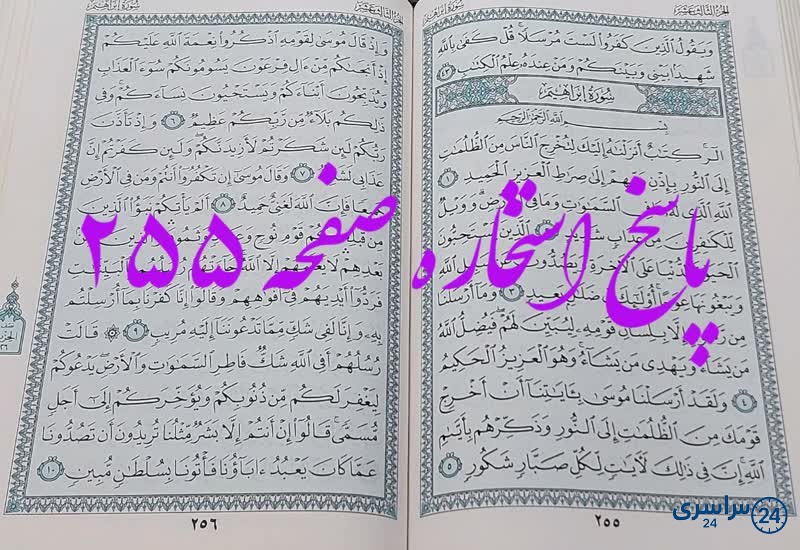 الجزء الثالث عشر
سورة إبراهيم
وَيَقُولُ ٱلَّذِينَ كَفَرُوا۟ لَسْتَ مُرْسَلًا ۚ قُلْ كَفَىٰ بِٱللَّهِ
شَهِيدًۢا بَيْنِى وَبَيْنَكُمْ وَمَنْ عِندَهُۥ عِلْمُ ٱلْكِتَٰبِ ٤٣
سُورَةُ إِبْرَاهِيمَ
بِسْمِ ٱللَّهِ ٱلرَّحْمَٰنِ ٱلرَّحِيمِ
الٓر ۚ كِتَٰبٌ أَنزَلْنَٰهُ إِلَيْكَ لِتُخْرِجَ ٱلنَّاسَ مِنَ ٱلظُّلُمَٰتِ
إِلَى ٱلنُّورِ بِإِذْنِ رَبِّهِمْ إِلَىٰ صِرَٰطِ ٱلْعَزِيزِ ٱلْحَمِيدِ ١
ٱللَّهِ ٱلَّذِى لَهُۥ فِى ٱلسَّمَٰوَٰتِ وَمَا فِى ٱلْأَرْضِ ۗ وَوَيْلٌ
لِّلْكَٰفِرِينَ مِنْ عَذَابٍ شَدِيدٍ ٱلَّذِينَ يَسْتَحِبُّونَ
ٱلْحَيَوٰةَ ٱلدُّنْيَا عَلَى ٱلْءَاخِرَةِ وَيَصُدُّونَ عَن سَبِيلِ ٱللَّهِ
وَيَبْغُونَهَا عِوَجًا ۚ أُو۟لَٰٓئِكَ فِى ضَلَٰلٍۭ بَعِيدٍ ٣ وَمَآ أَرْسَلْنَا
مِن رَّسُولٍ إِلَّا بِلِسَانِ قَوْمِهِۦ لِيُبَيِّنَ لَهُمْ ۖ فَيُضِلُّ ٱللَّهُ
مَن يَشَآءُ وَيَهْدِى مَن يَشَآءُ ۚ وَهُوَ ٱلْعَزِيزُ ٱلْحَكِيمُ
٤ وَلَقَدْ أَرْسَلْنَا مُوسَىٰ بِـَٔايَٰتِنَآ أَنْ أَخْرِجْ
قَوْمَكَ مِنَ ٱلظُّلُمَٰتِ إِلَى ٱلنُّورِ وَذَكِّرْهُم بِأَيَّىٰمِ
ٱللَّهِ ۚ إِنَّ فِى ذَٰلِكَ لَءَايَٰتٍ لِّكُلِّ صَبَّارٍ شَكُورٍ ٥
٢٥٥
الجزء الثالث عشر
سورة إبراهيم
وَإِذْ قَالَ مُوسَىٰ لِقَوْمِهِ ٱذْكُرُوا۟ نِعْمَةَ ٱللَّهِ عَلَيْكُمْ
إِذْ أَنجَىٰكُم مِّنْ ءَالِ فِرْعَوْنَ يَسُومُونَكُمْ سُوٓءَ ٱلْعَذَابِ
وَيُذَبِّحُونَ أَبْنَآءَكُمْ وَيَسْتَحْيُونَ نِسَآءَكُمْ ۚ وَفِى
ذَٰلِكُم بَلَآءٌ مِّن رَّبِّكُمْ عَظِيمٌ ٦ وَإِذْ تَأَذَّنَ
رَبُّكُمْ لَئِن شَكَرْتُمْ لَأَزِيدَنَّكُمْ ۖ وَلَئِن كَفَرْتُمْ إِنَّ
عَذَابِى لَشَدِيدٌ ٧ وَقَالَ مُوسَىٰٓ إِن تَكْفُرُوٓا۟ أَنتُمْ وَمَن فِى ٱلْأَرْضِ
جَمِيعًا فَإِنَّ ٱللَّهَ لَغَنِىٌّ حَمِيدٌ ٨ أَلَمْ يَأْتِكُمْ نَبَؤُا۟ ٱلَّذِينَ
مِن قَبْلِكُمْ قَوْمِ نُوحٍ وَعَادٍ وَثَمُودَ ۛ وَٱلَّذِينَ مِنۢ
بَعْدِهِمْ ۛ لَا يَعْلَمُهُمْ إِلَّا ٱللَّهُ ۚ جَآءَتْهُمْ رُسُلُهُم بِٱلْبَيِّنَٰتِ
فَرَدُّوٓا۟ أَيْدِيَهُمْ فِىٓ أَفْوَٰهِهِمْ وَقَالُوٓا۟ إِنَّا كَفَرْنَا بِمَآ أُرْسِلْتُم
بِهِۦ وَإِنَّا لَفِى شَكٍّ مِّمَّا تَدْعُونَنَآ إِلَيْهِ مُرِيبٍ ٩ ۞ قَالَتْ
رُسُلُهُمْ أَفِى ٱللَّهِ شَكٌّ فَاطِرِ ٱلسَّمَٰوَٰتِ وَٱلْأَرْضِ ۖ يَدْعُوكُمْ
لِيَغْفِرَ لَكُم مِّن ذُنُوبِكُمْ وَيُؤَخِّرَكُمْ إِلَىٰٓ أَجَلٍ
مُّسَمًّى ۚ قَالُوٓا۟ إِنْ أَنتُمْ إِلَّا بَشَرٌ مِّثْلُنَا تُرِيدُونَ أَن تَصُدُّونَا
عَمَّا كَانَ يَعْبُدُ ءَابَآؤُنَا فَأْتُونَا بِسُلْطَٰنٍ مُّبِينٍ ١٠
٢٥٦
پاسخ استخاره صفحه ۲۵۵
سراسری 24
24